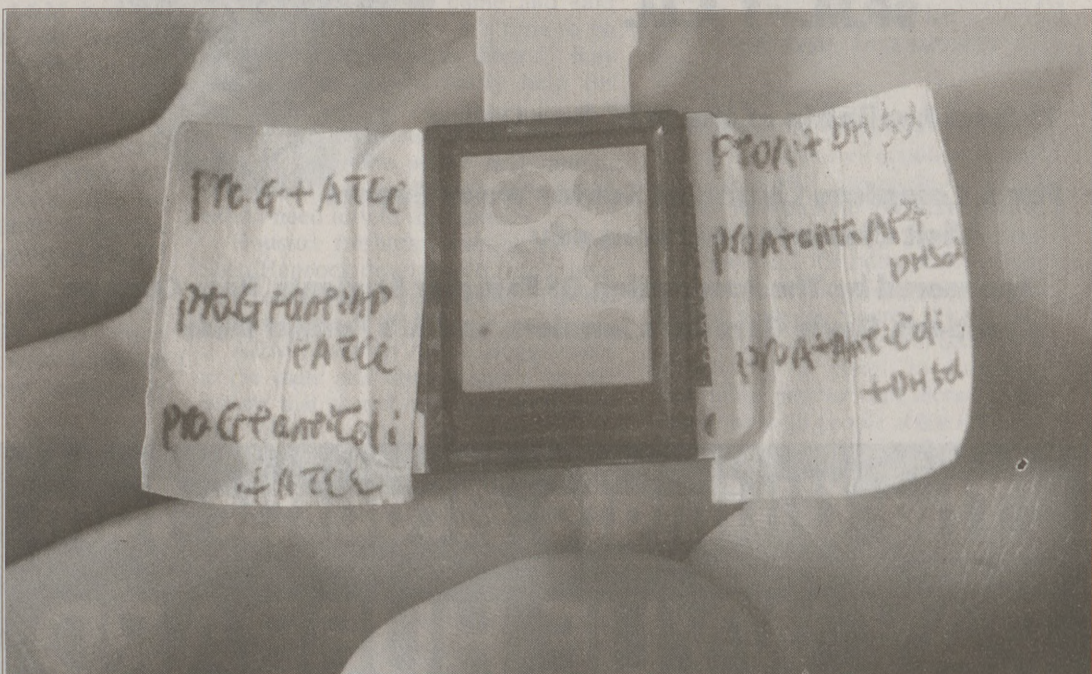 Pro G + ATCC
Pro G + anti AP
+ ATCC
Pro G + anti Coli
+ ATCC
+ DH5α
DH5α
Pro A + Anti Coli
+ DH5α